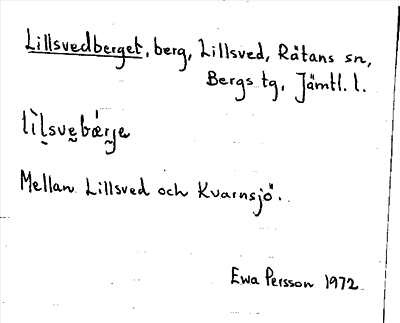 Lillsvedberget, berg, Lillsved, Rätans sn,
Bergs tg, Jämtl. l.
lìl̥sve̮bǽrje
Mellan Lillsved och Kvarnsjö.
Ewa Persson 1972